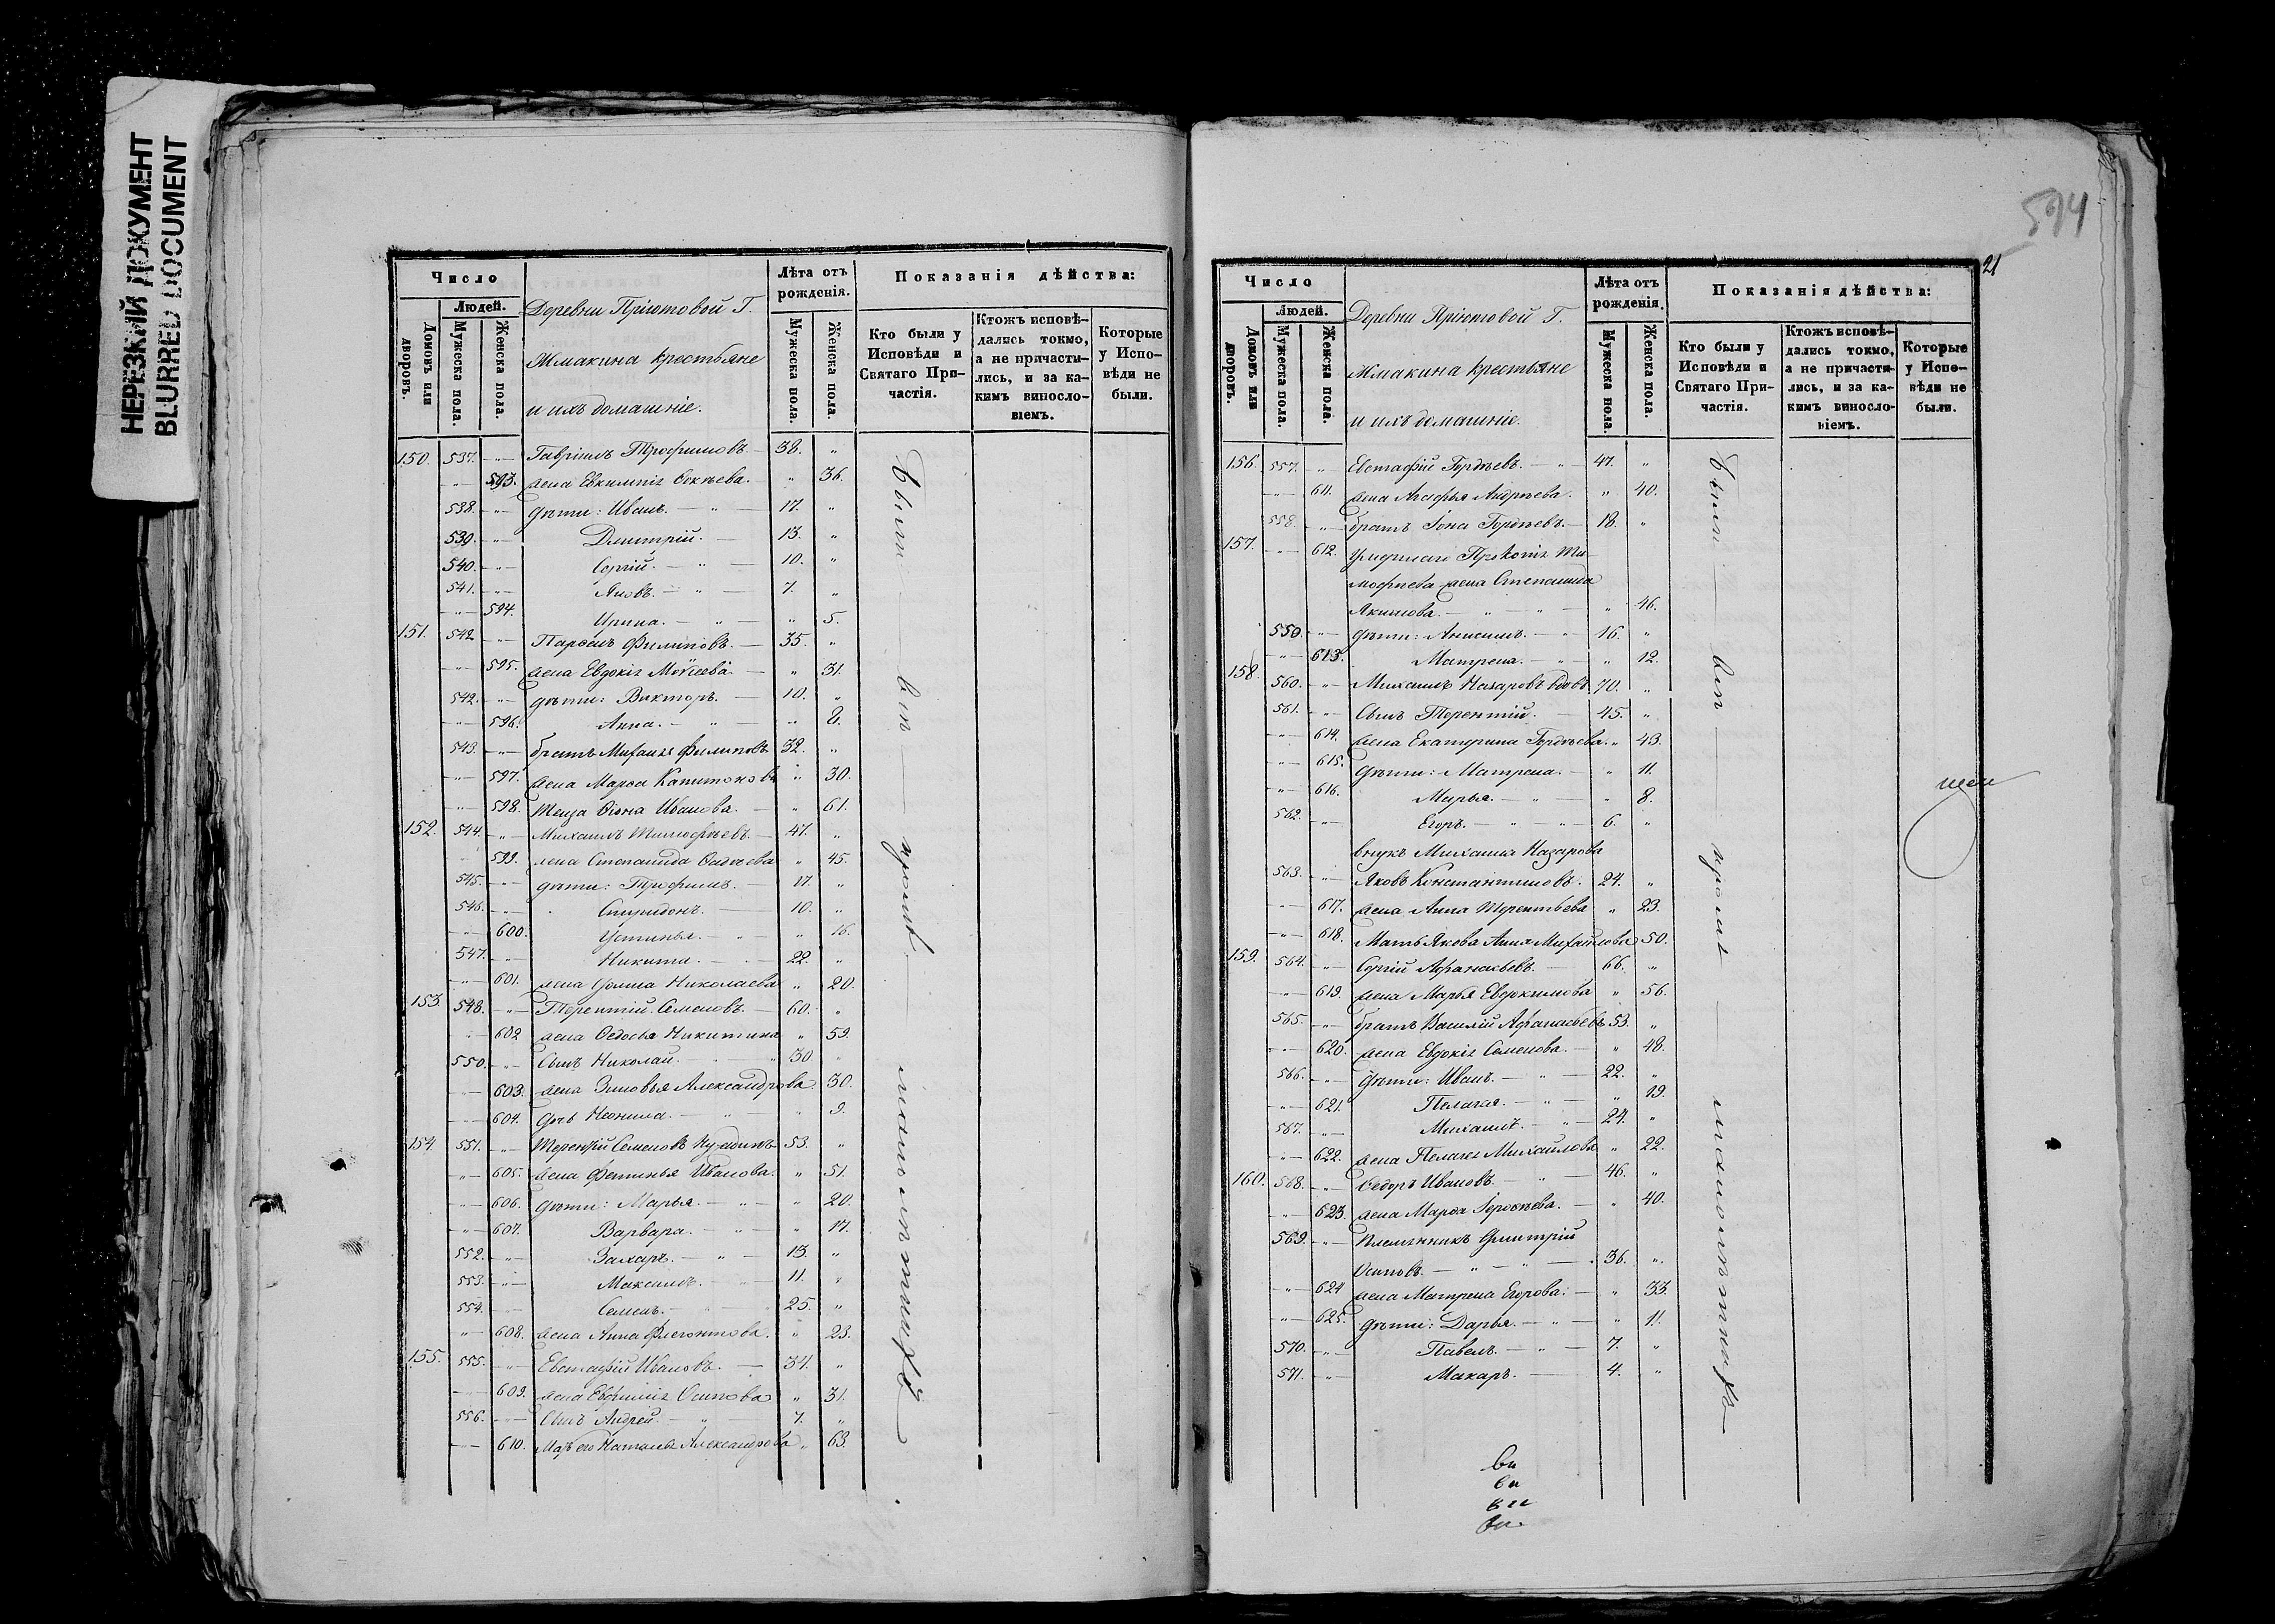 НЕРЕЗКИЙ ДОКУМЕНТ
BLURRED DOCUMENT
Число
Людей.
Домовъ или дворовъ.
Мужеска пола.
Женска пола.
Деревни Пріютовой Г.
Жмакина крестьяне
и ихъ домашніе.
Лѣта отъ рожденія.
Мужеска пола.
Женска пола.
Показанія дѣйства:
Кто были у Исповѣди и Святаго Причастія.
Ктожъ исповѣдались токмо, а не причастились, и за какимъ винословіемъ.
Которые у Исповѣди не были.
150. 537. -"- Гавріилъ Трофимовъ 38. "
-"- 593. жена Евкимпія Ѳокѣева. " 36.
538. -"- дѣти: Иванъ. - " - 17. "
539. -"- Дмитрій. - 13. "
540. -"- Сергій. - " - 10. "
541. -"- Яковъ. - " - 7. "
-"- 594. Ирина. - " - " 5.
151. 542 -"- Парѳенъ Филиповъ. - 35. "
-"- 595. жена Евдокія Моѵсеева - " 31.
542. -"- дѣти: Викторъ. - 10. "
-"- 596. Анна. - " - " 8.
543. -"- братъ Михаилъ Филиповъ 32. "
-"- 597. жена Марѳа Капитонова " 30.
-"- 598. теща Ѳіона Иванова. - " 61.
152. 544. -"- Михаилъ Тимофѣевъ. - 47. "
599. жена Степанида " 45.
545. -"- дѣти: Трофимъ. - 17. "
546. -"- Спиридонъ. - 10. "
-"- 600. Устинья. - " - " 16.
547. -"- Никита. - " - 22. "
-"- 601. жена Фолина Николаева " 20.
153 548. -"- Терентій Семеновъ. - 60. "
-"- 602 жена Ѳедосья Никитина " 59.
550. -"- Сынъ Николай. - " 30 "
-"- 603. жена Зиновья Александрова. 30.
-"- 604. дчь Неонила. - " - " 9.
154 551. -"- Терентій Семеновъ 53. "
-"- 605. жена Фетинья Иванова. " 51.
-"- 606. дѣти: Марья. - " - " 20.
-"- 607. Варвара. - " - " 17.
552. -"- Захаръ. - " - 13. "
553. -"- Максимъ. - " - 11. "
554. -"- Семенъ. - 25. "
-"- 608. жена Анна Флегонтова. " 23.
155. 555. -"- Евстафій Ивановъ. - 34. "
-"- 609. жена Евфимія Осипова " 31.
556. -"- Сынъ Андрей. - " 7. "
-"- 610. Мать его Наталья Александрова " 63.
Были - въ - прошл - мѣстъ
594
21
Число
Людей.
Домовъ или дворовъ.
Мужеска пола.
Женска пола.
Деревни Пріютовой Г.
Жмакина крестьяне
и ихъ домашніе.
Лѣта отъ рожденія.
Мужеска пола.
Женска пола.
Показанія дѣйства:
Кто были у Исповѣди и Святаго Причастія.
Ктожъ исповѣдались токмо, а не причастились, и за какимъ винословіемъ.
Которые у Исповѣди не были.
156. 557. -"- Евстафій Гордѣевъ. - " - 47. "
-"- 611. жена Агафья Андреева. " 40.
558. -"- братъ Іона Гордѣевъ. - 18. "
157. -"- 612. Умершаго Прокопія Ти-
мофѣева жена Степанида
Якимова. - " - " - " 46.
550. -"- дѣти: Анисимъ. - " 16. "
-"- 613. Матрена. - " - " 12.
158. 560. -"- Михаилъ Назаровъ вдовъ 70. "
561. -"- Сынъ Терентій. - 45. "
-"- 614. жена Екатерина Гордѣева. " 43.
-"- 615. дѣти: Матрена. - " 11.
-"- 616. Марья. - " - " 8.
562. -"- Егоръ. - " - " - 6. "
внукъ Михаила Назарова
563. -"- Яковъ Константиновъ. 24. "
-"- 617. жена Анна Терентьева " 23.
-"- 618. Мать Якова Анна Михайлова 50.
159. 564. -"- Сергій Афанасьевъ. - 66. "
-"- 619. жена Марья Евдокимова " 56.
565. -"- братъ Василій Афанасьевъ 53. "
-"- 620. жена Евдокія Семенова. - " 48.
566. -"- дѣти: Иванъ. - " - 22. "
-"- 621. Пелагея. - " - " 19.
567. -"- Михаилъ. - " - 24. "
-"- 622. жена Пелагея Михайлова " 22.
160. 568. -"- Ѳедоръ Ивановъ. - " - 46. "
-"- 623. жена Марѳа Іероѳѣева. - " 40.
569. -"- племянникъ Дмитрій
Осиповъ. - " - " - 36. "
-"- 624 жена Матрена Егорова. - " 33.
-"- 625. дѣти: Дарья. - " - " 11.
570. -"- Павелъ. - " - 7. "
571. -"- Макаръ. - 4. "
Были - въ - прошл